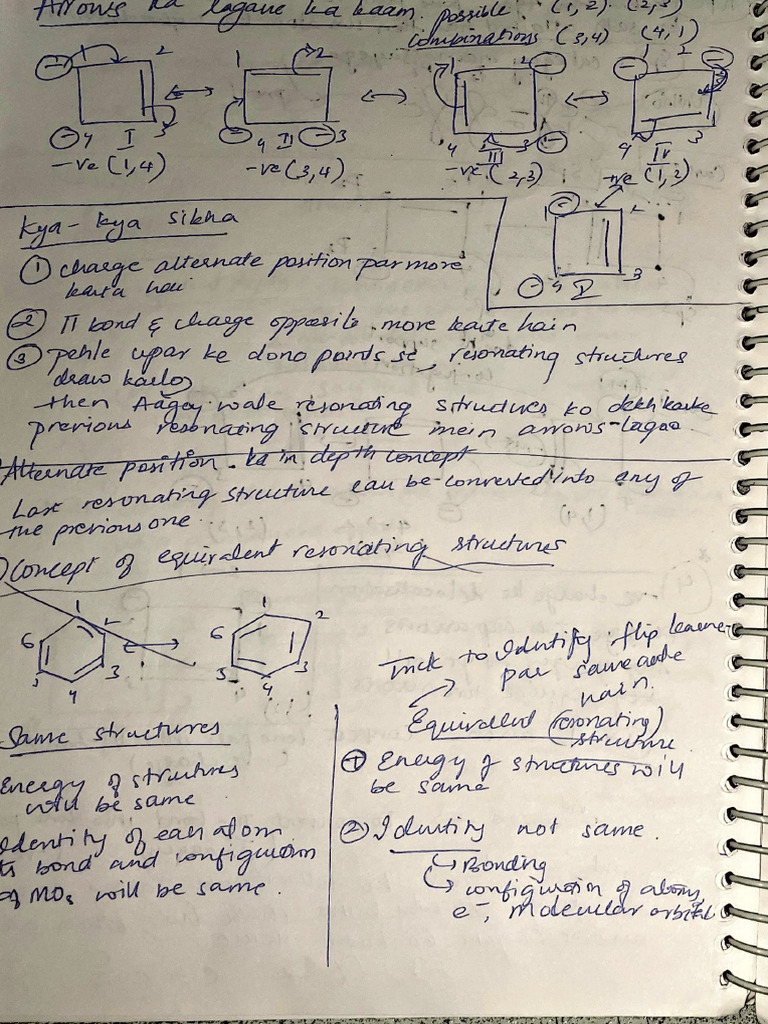 Arrows ka lagane ka kaam possible (1,2) (2,3)
combinations (3,4) (4,1)
1 2 1 2 1 2 1 2
4 I 3 4 II 3 4 III 3 4 IV 3
-ve (1,4) -ve (3,4) -ve (2,3) -ve (1,2)
Kya-kya sikha
1
4 V 3
① charge alternate position par move
karta hai
② π bond & charge opposite move karte hain
③ pehle upar ke dono points se, resonating structures
draw karlo
then Aagey wale resonating structures ko dekh karke
previous resonating structure mein arrows lagao.
Alternate position ka in depth concept
Last resonating structure can be converted into any of
the previous one.
Concept of equivalent resonating structures
1 1 2
6 2 6
3 5 3
4 4
Trick to Identify flip karne
par same aate
hain.
Same structures
Energy of structures
will be same
Identity of each atom
its bond and configuration
of MOs will be same.
Equivalent (resonating)
structure
① Energy of structures will
be same
② Identity not same.
↳ Bonding
↳ configuration of atoms,
e⁻, Molecular orbital